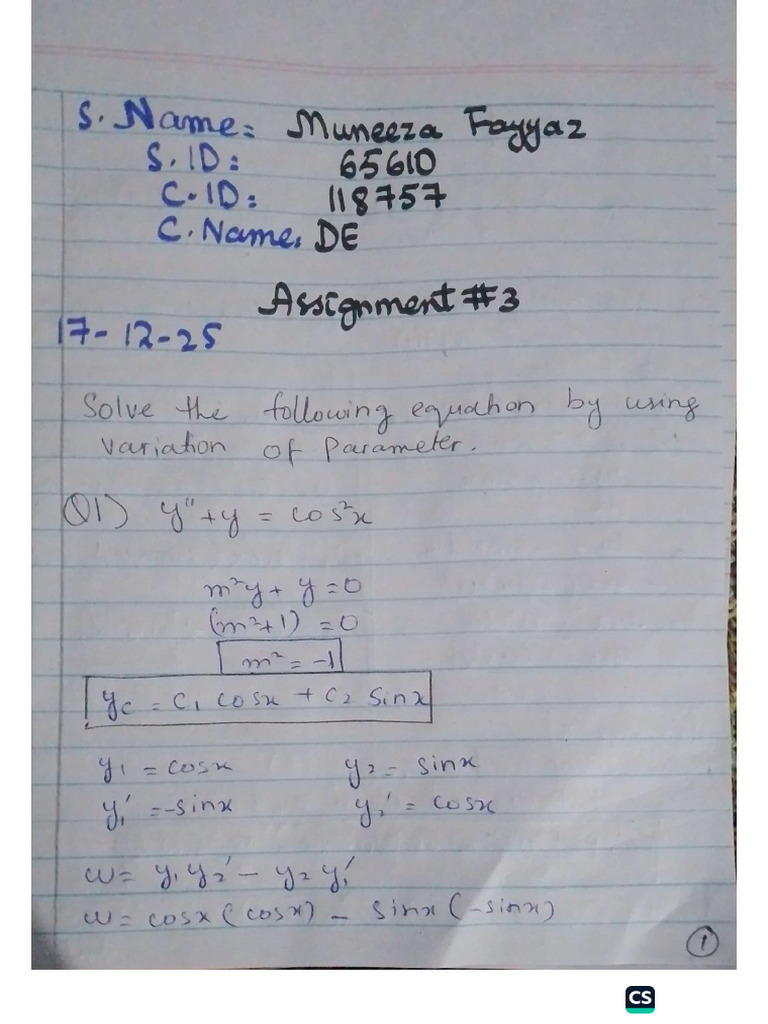 S. Name: Muneeza Fayyaz
S. ID: 65610
C. ID: 118757
C. Name. DE
Assignment #3
17-12-25
Solve the following equation by using
variation of Parameter.
Q1) y" + y = cos²x
m²y + y = 0
(m²+1) = 0
m² = -1
yc = C1 cosx + C2 Sinx
y1 = cosx y2 = sinx
y1' = -sinx y2' = cosx
w = y1 y2' - y2 y1'
w = cosx (cosx) - sinx (-sinx)
1
CS